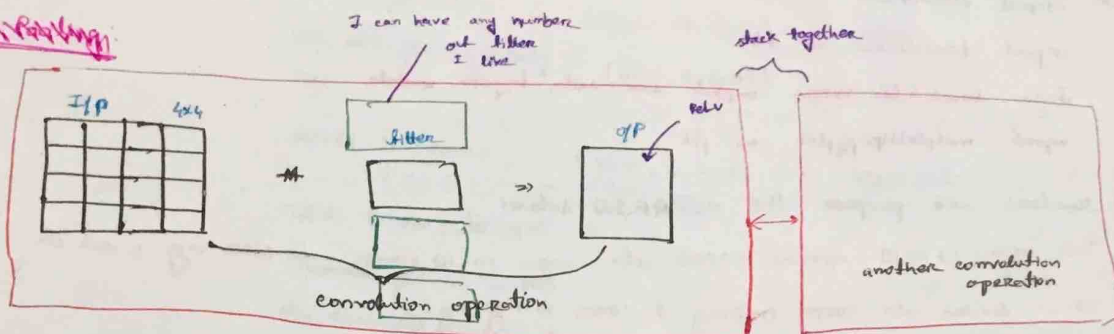 I can have any number
of filter
I like
stack together
I/P 4x4
filter
O/P
relu
*
=>
convolution operation
another convolution
operation